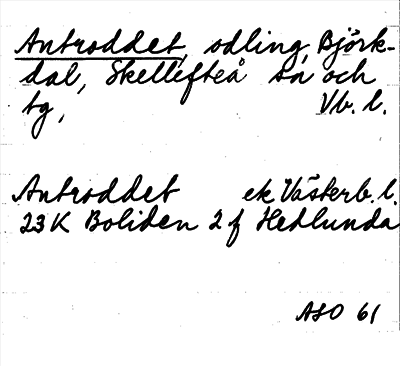 Antroddet, odling, Björk-
dal, Skellefteå sn och
tg, Vb. l.
Antroddet ek Västerb. l.
23 K Boliden 2 f Hedlunda
ASO 61